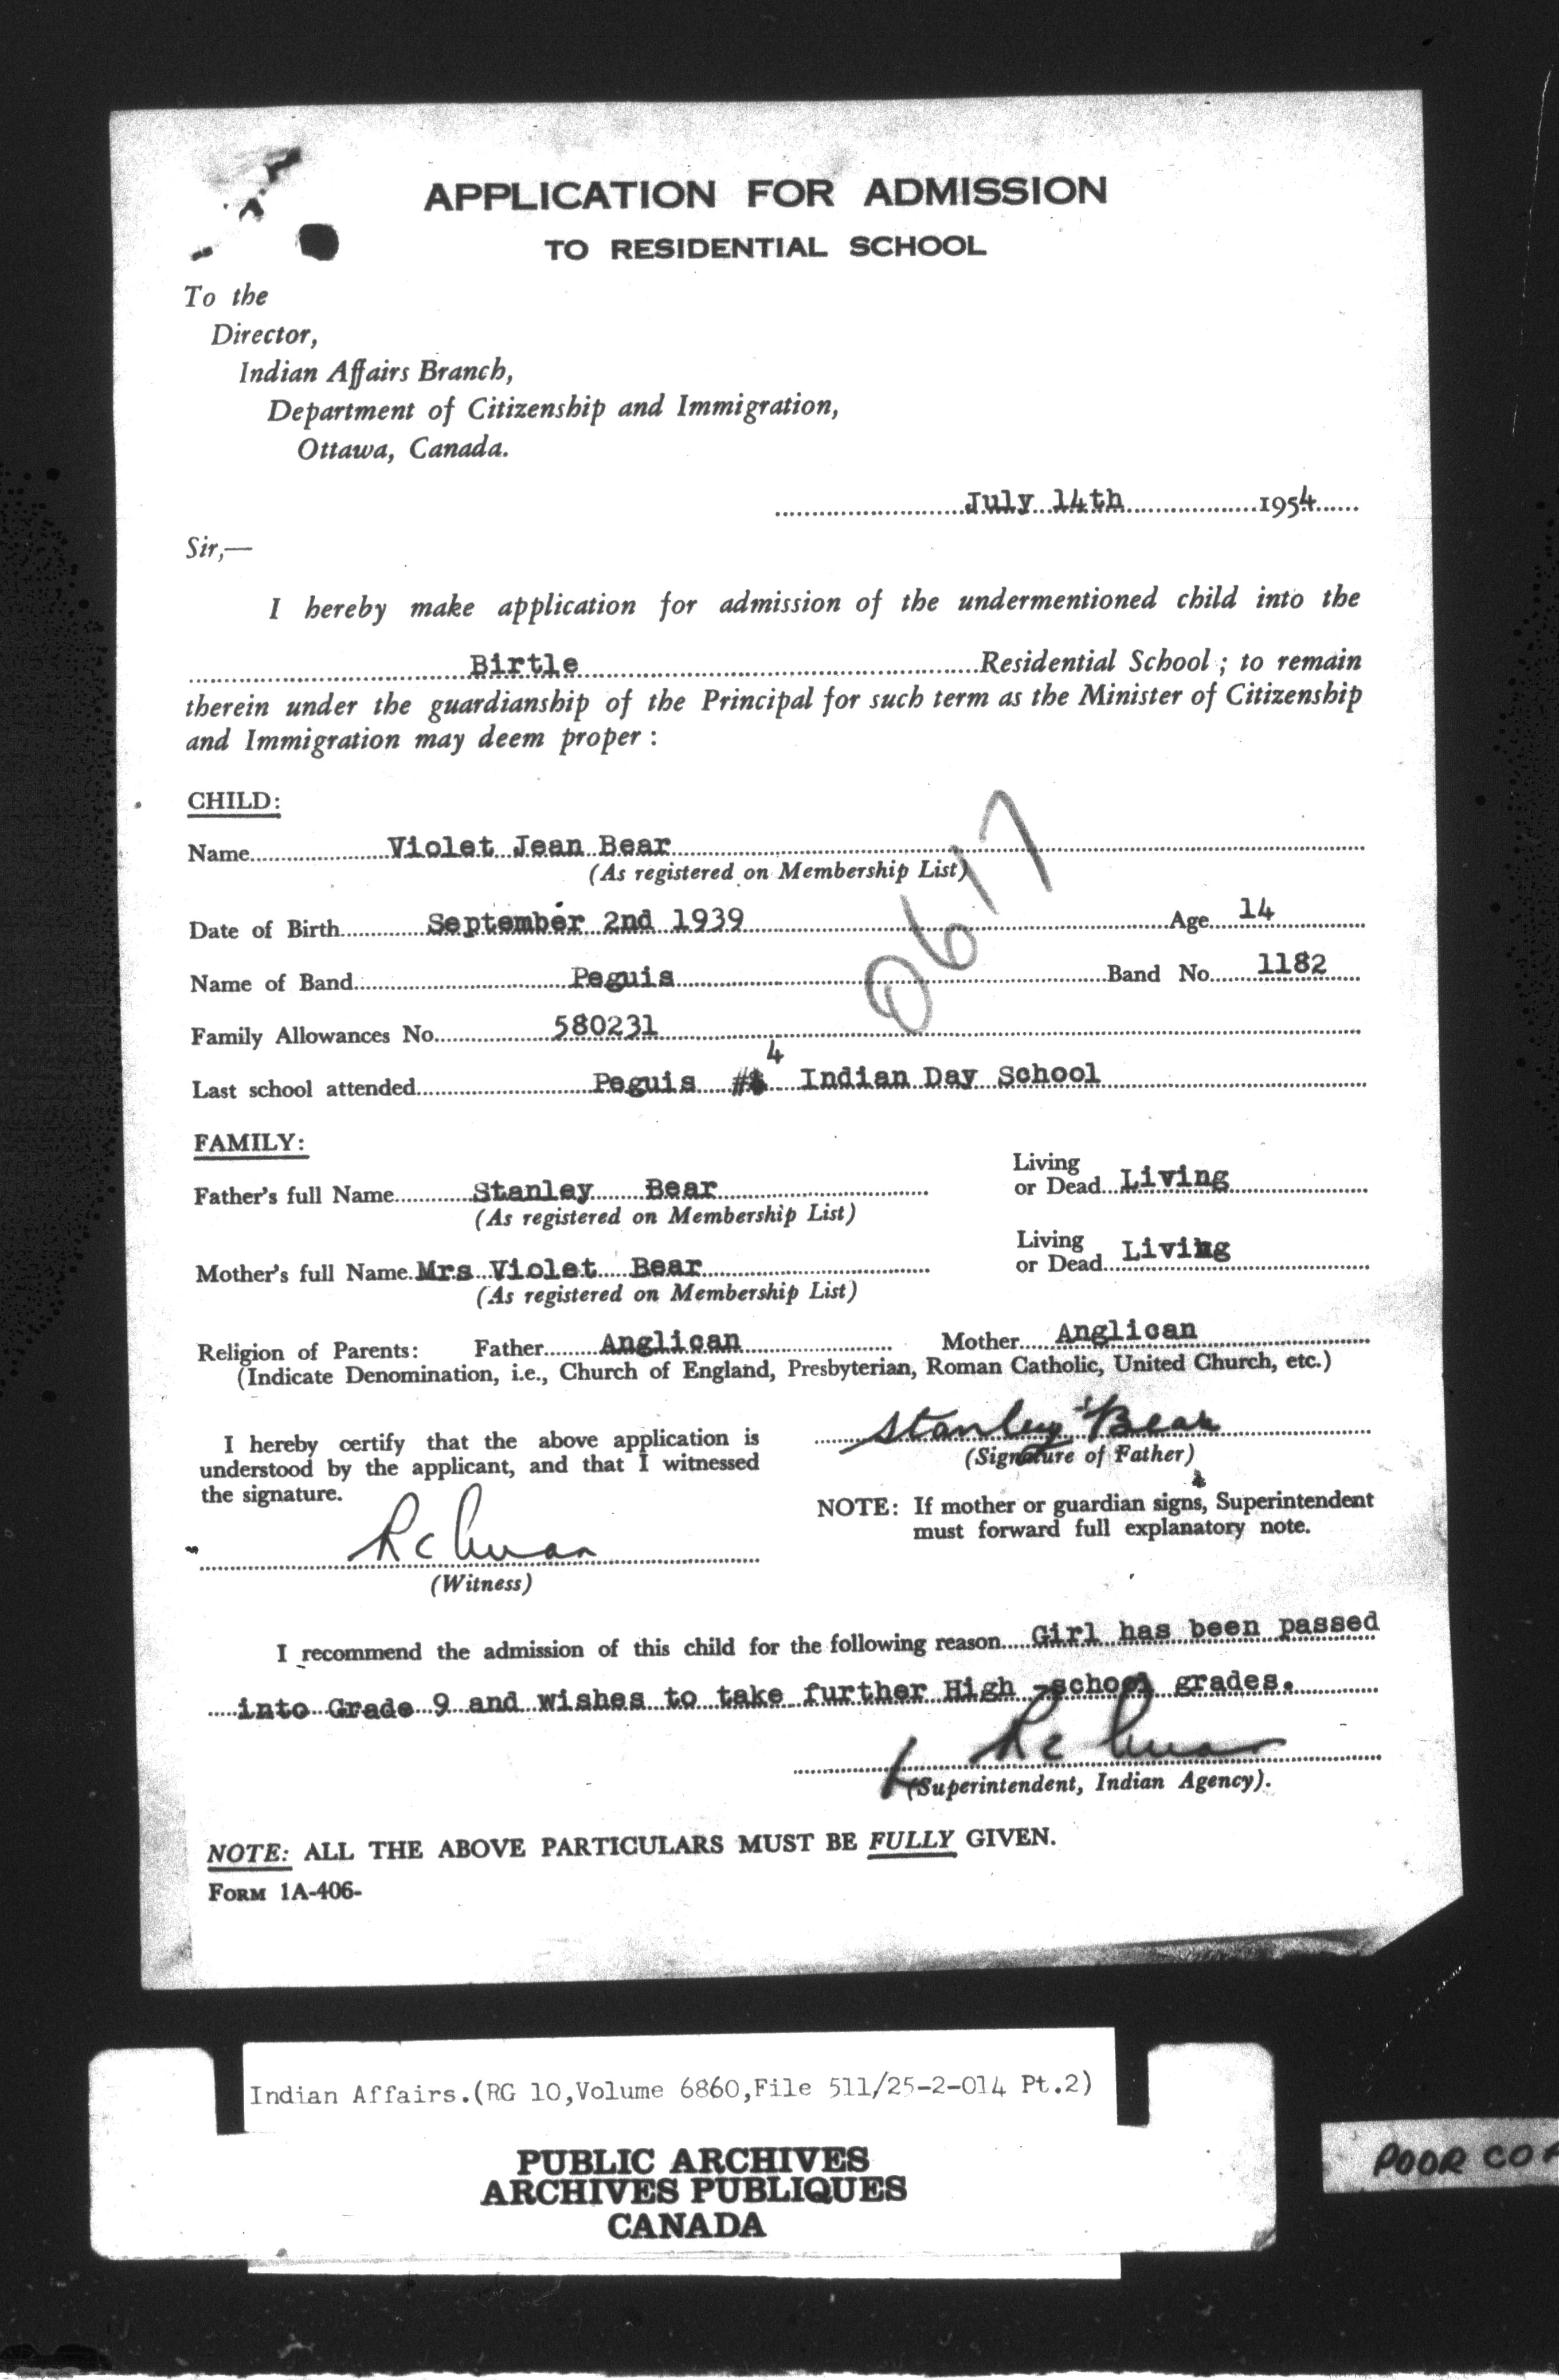 APPLICATION FOR ADMISSION
TO RESIDENTIAL SCHOOL
To the
Director,
Indian Affairs Branch,
Department of Citizenship and Immigration,
Ottawa, Canada.
July 14th 1954
Sir,—
I hereby make application for admission of the undermentioned child into the
Birtle Residential School ; to remain
therein under the guardianship of the Principal for such term as the Minister of Citizenship
and Immigration may deem proper :
CHILD:
Name Violet Jean Bear
(As registered on Membership List)
Date of Birth September 2nd 1939 Age 14
Name of Band Peguis Band No. 1182
0617
Family Allowances No. 580231
Last school attended Peguis # 4 Indian Day School
FAMILY:
Father's full Name Stanley Bear Living or Dead Living
(As registered on Membership List)
Mother's full Name Mrs Violet Bear Living or Dead Living
(As registered on Membership List)
Religion of Parents: Father Anglican Mother Anglican
(Indicate Denomination, i.e., Church of England, Presbyterian, Roman Catholic, United Church, etc.)
Stanley Bear
(Signature of Father)
I hereby certify that the above application is
understood by the applicant, and that I witnessed
the signature.
(Witness)
NOTE: If mother or guardian signs, Superintendent
must forward full explanatory note.
I recommend the admission of this child for the following reason Girl has been passed
into Grade 9 and wishes to take further High -school grades.
(Superintendent, Indian Agency).
NOTE: ALL THE ABOVE PARTICULARS MUST BE FULLY GIVEN.
FORM 1A-406-
Indian Affairs.(RG 10,Volume 6860,File 511/25-2-014 Pt.2)
PUBLIC ARCHIVES
ARCHIVES PUBLIQUES
CANADA
POOR CO